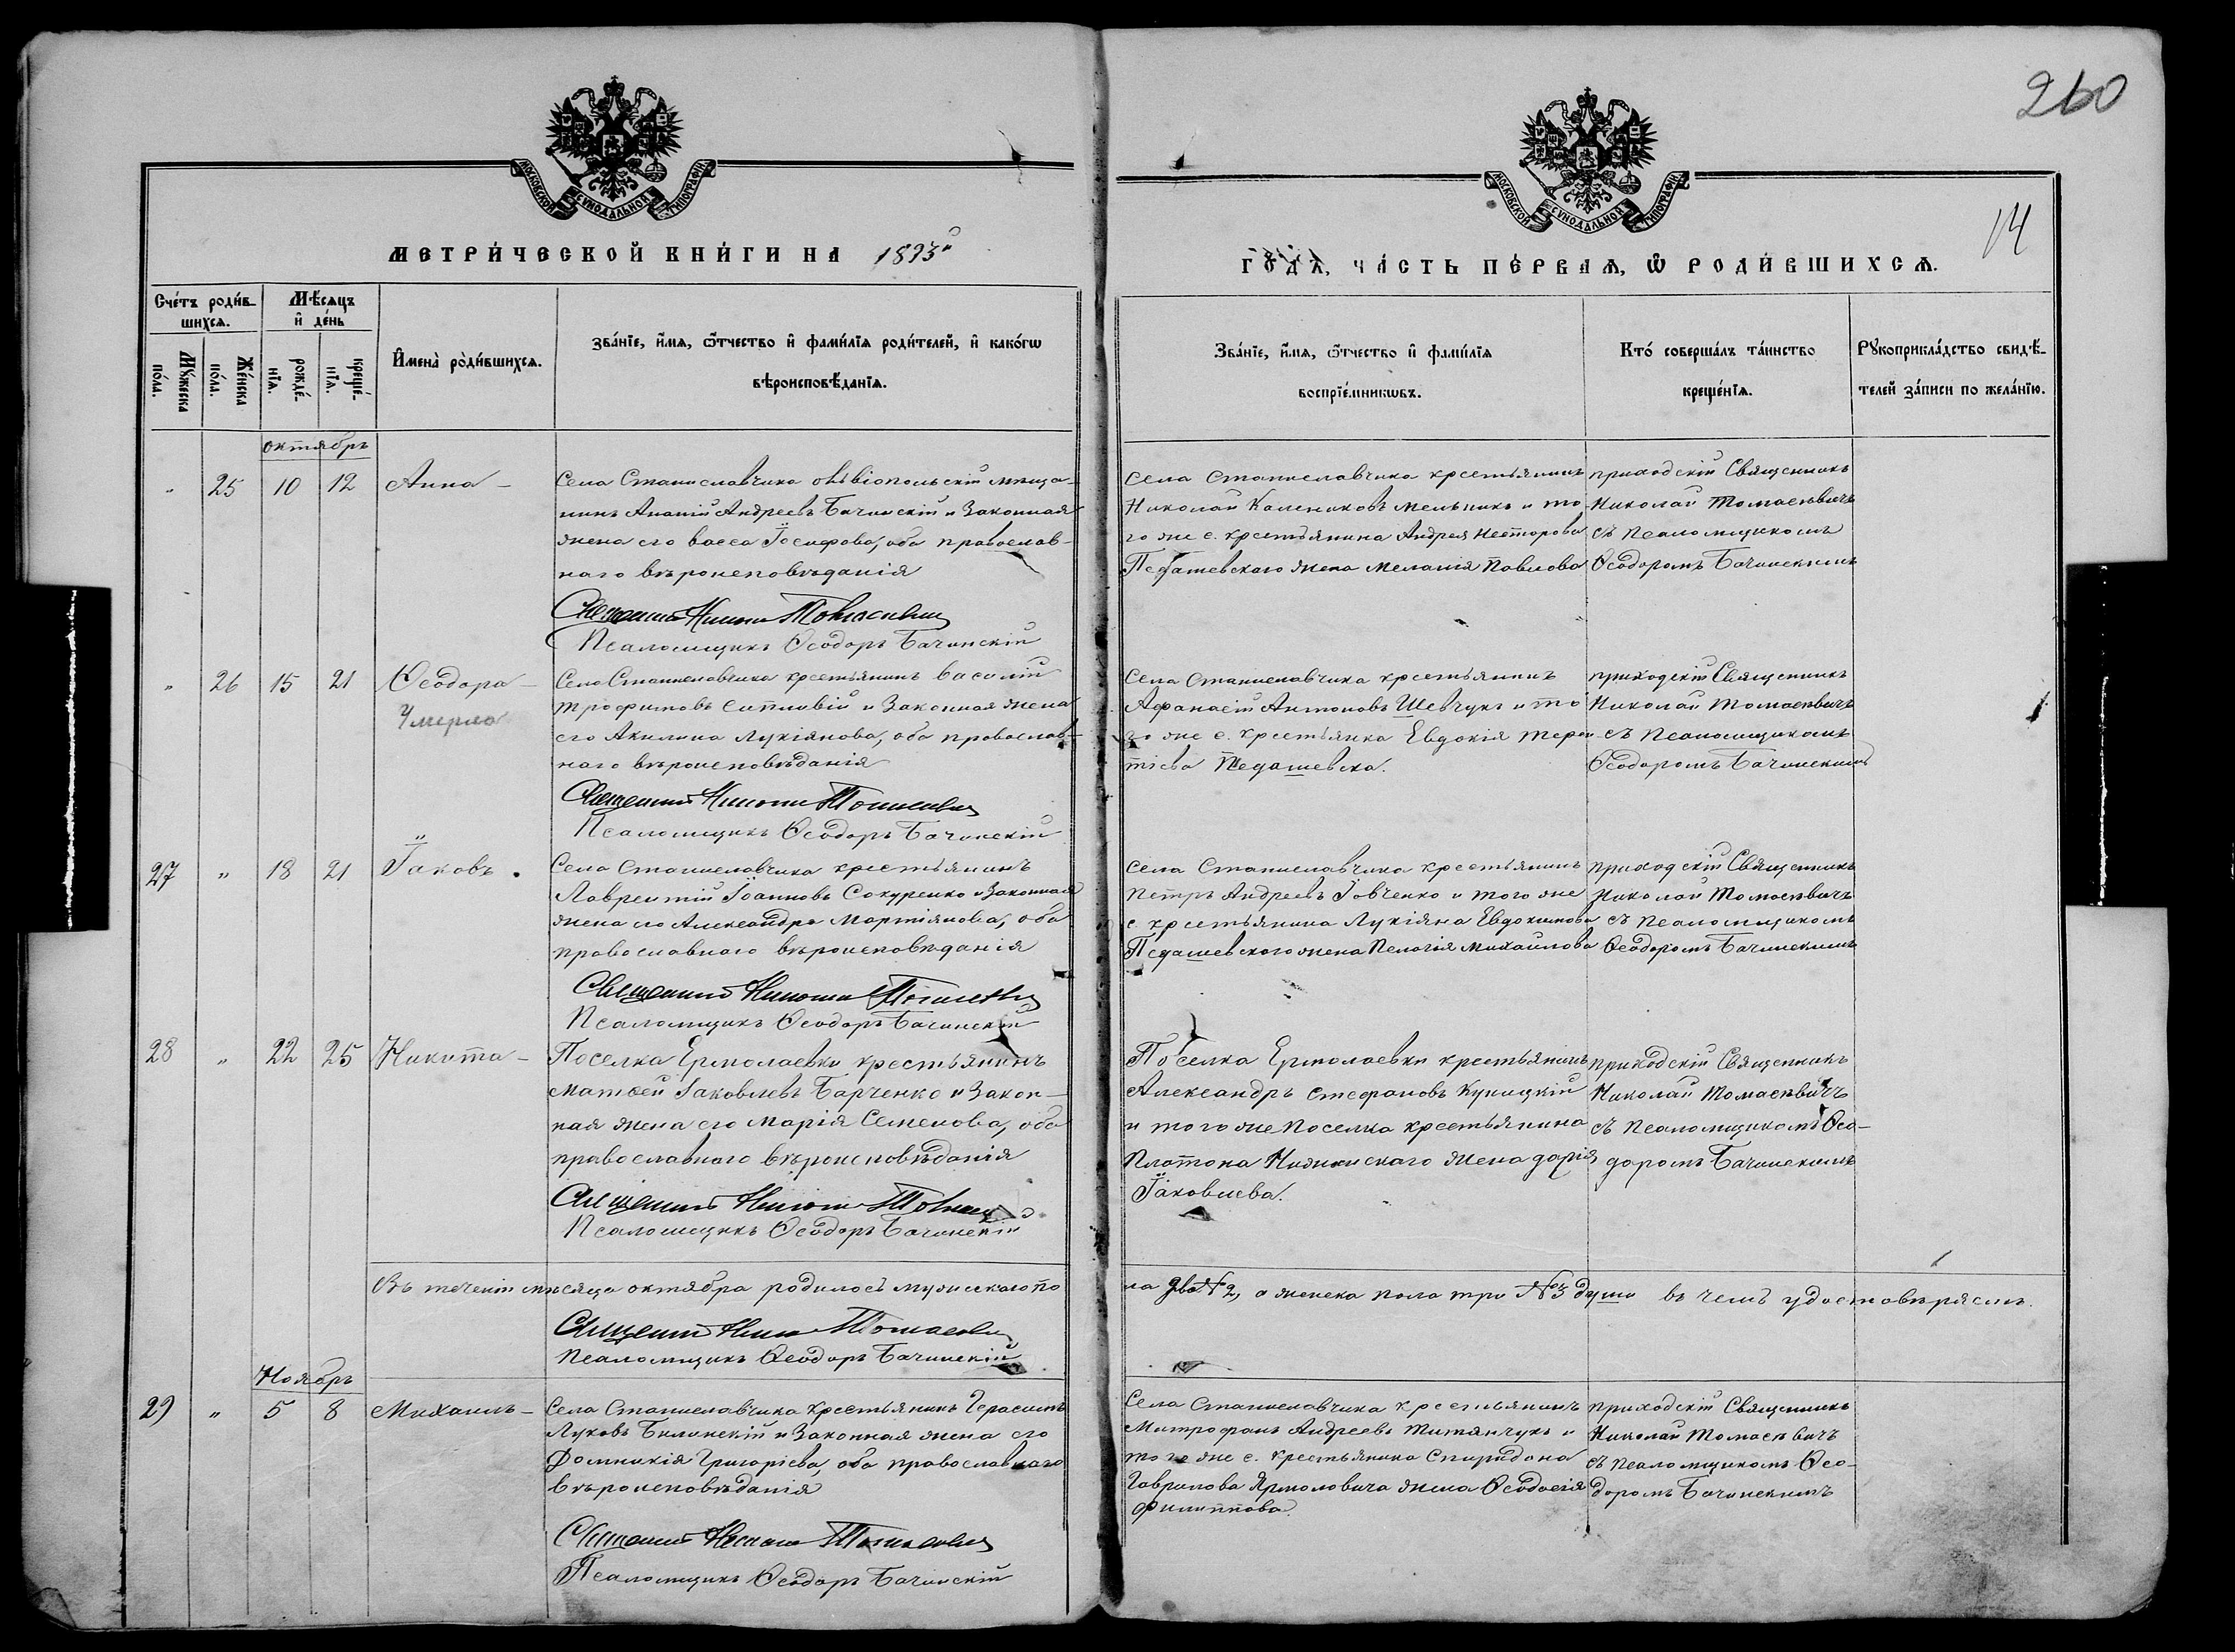 260
14
МОСКОВСКОЙ СѴНОДАЛЬНОЙ ТИПОГРАФІИ
МОСКОВСКОЙ СѴНОДАЛЬНОЙ ТИПОГРАФІИ
МЕТРИ́ЧЕСКОЙ КНИ́ГИ НА 1893й
ГО́ДА, ЧА́СТЬ ПЕ́РВАѦ, Ѡ РОДИ́ВШИХСѦ.
Счéтъ роди́в-
шихсѧ.
Мꙋ́жеска
по́ла.
Жéнска
по́ла.
Мѣ́сѧцъ
и҆ де́нь
рождé-
нїѧ.
крещé-
нїѧ.
И҆мена̀ роди́вшихсѧ.
Зва́нїе, и҆́мѧ, ѻ҆́тчество и҆ фами́лїѧ роди́телей, и҆ како́гѡ
вѣроисповѣ́данїѧ.
Зва́нїе, и҆́мѧ, ѻ҆́тчество и҆ фами́лїѧ
воспрїе́мникѡвъ.
Кто́ соверша́лъ та́инство
креще́нїѧ.
Рꙋкоприкла́дство свидѣ́-
телей за́писи по жела́нїю.
октябрь
" 25 10 12 Анна -
Села Станиславчика ольвіопольскій мѣща-
нинъ Ананій Андреевъ Бачинскій и Законная
жена его Васса Іосифова, оба православ-
наго вѣроисповѣданія
Священникъ Николай Томасевичъ
Псаломщикъ Ѳеодоръ Бачинскій
Села Станиславчика крестьянинъ
Николай Калениковъ Мельникъ и то-
го же с. крестьянина Андрея Несторова
Педашевскаго жена Меланія Павлова
приходскій Священникъ
Николай Томасевичъ
съ Псаломщикомъ
Ѳеодоромъ Бачинскимъ
" 26 15 21 Ѳеодора -
Умерла
Села Станиславчика крестьянинъ Василій
Трофимовъ Ситливій и Законная жена
его Акилина Лукіянова, оба православ-
наго вѣроисповѣданія
Священникъ Николай Томасевичъ
Псаломщикъ Ѳеодоръ Бачинскій
Села Станиславчика крестьянинъ
Афанасій Антоновъ Шевчукъ и то
го же с. крестьянка Евдокія Терен-
тіева Педашевска.
приходскій Священникъ
Николай Томасевичъ
съ Псаломщикомъ
Ѳеодоромъ Бачинскимъ
27 " 18 21 Іаковъ.
Села Станиславчика крестьянинъ
Лаврентій Іоанновъ Сокуренко и Законная
жена его Александра Мартіянова, оба
православнаго вѣроисповѣданія
Священникъ Николай Томасевичъ
Псаломщикъ Ѳеодоръ Бачинскій
Села Станиславчика крестьянинъ
Петръ Андреевъ Іовченко и того же
с. крестьянина Лукіяна Евдокимова
Педашевского жена Пелагія Михаилова
приходскій Священникъ
Николай Томасевичъ
съ Псаломщикомъ
Ѳеодоромъ Бачинскимъ
28 " 22 25 Никита -
Поселка Ермолаевки крестьянинъ
Матѳей Іаковлевъ Барченко и Закон-
ная жена его Марія Семенова, оба
православнаго вѣроисповѣданія
Священникъ Николай Томасевичъ
Псаломщикъ Ѳеодоръ Бачинскій
Поселка Ермолаевки крестьянинъ
Александръ Стефановъ Куницкій
и того же поселка крестьянина
Платона жена Дарія
Іаковлева.
приходскій Священникъ
Николай Томасевичъ
съ Псаломщикомъ Ѳео-
доромъ Бачинскимъ
Въ теченіи мѣсяца октября родилось мужискаго по
ла два № 2, а женска пола три № 3 души въ чемъ удостовѣряемъ.
Священникъ Николай Томасевичъ
Псаломщикъ Ѳеодоръ Бачинскій
Ноябрь
29 " 5 8 Михаилъ -
Села Станиславчика крестьянинъ Герасимъ
Луковъ Билинскій и Законная жена его
Домникія Григоріева, оба православнаго
вѣроисповѣданія
Священникъ Николай Томасевичъ
Псаломщикъ Ѳеодоръ Бачинскій
Села Станиславчика крестьянинъ
Митрофанъ Андреевъ Титянчукъ и
того же с. крестьянина Спиридона
Гаврилова Ярмоловича жена Ѳеодосія
Филиппова.
приходскій Священникъ
Николай Томасевичъ
съ Псаломщикомъ Ѳео-
доромъ Бачинскимъ